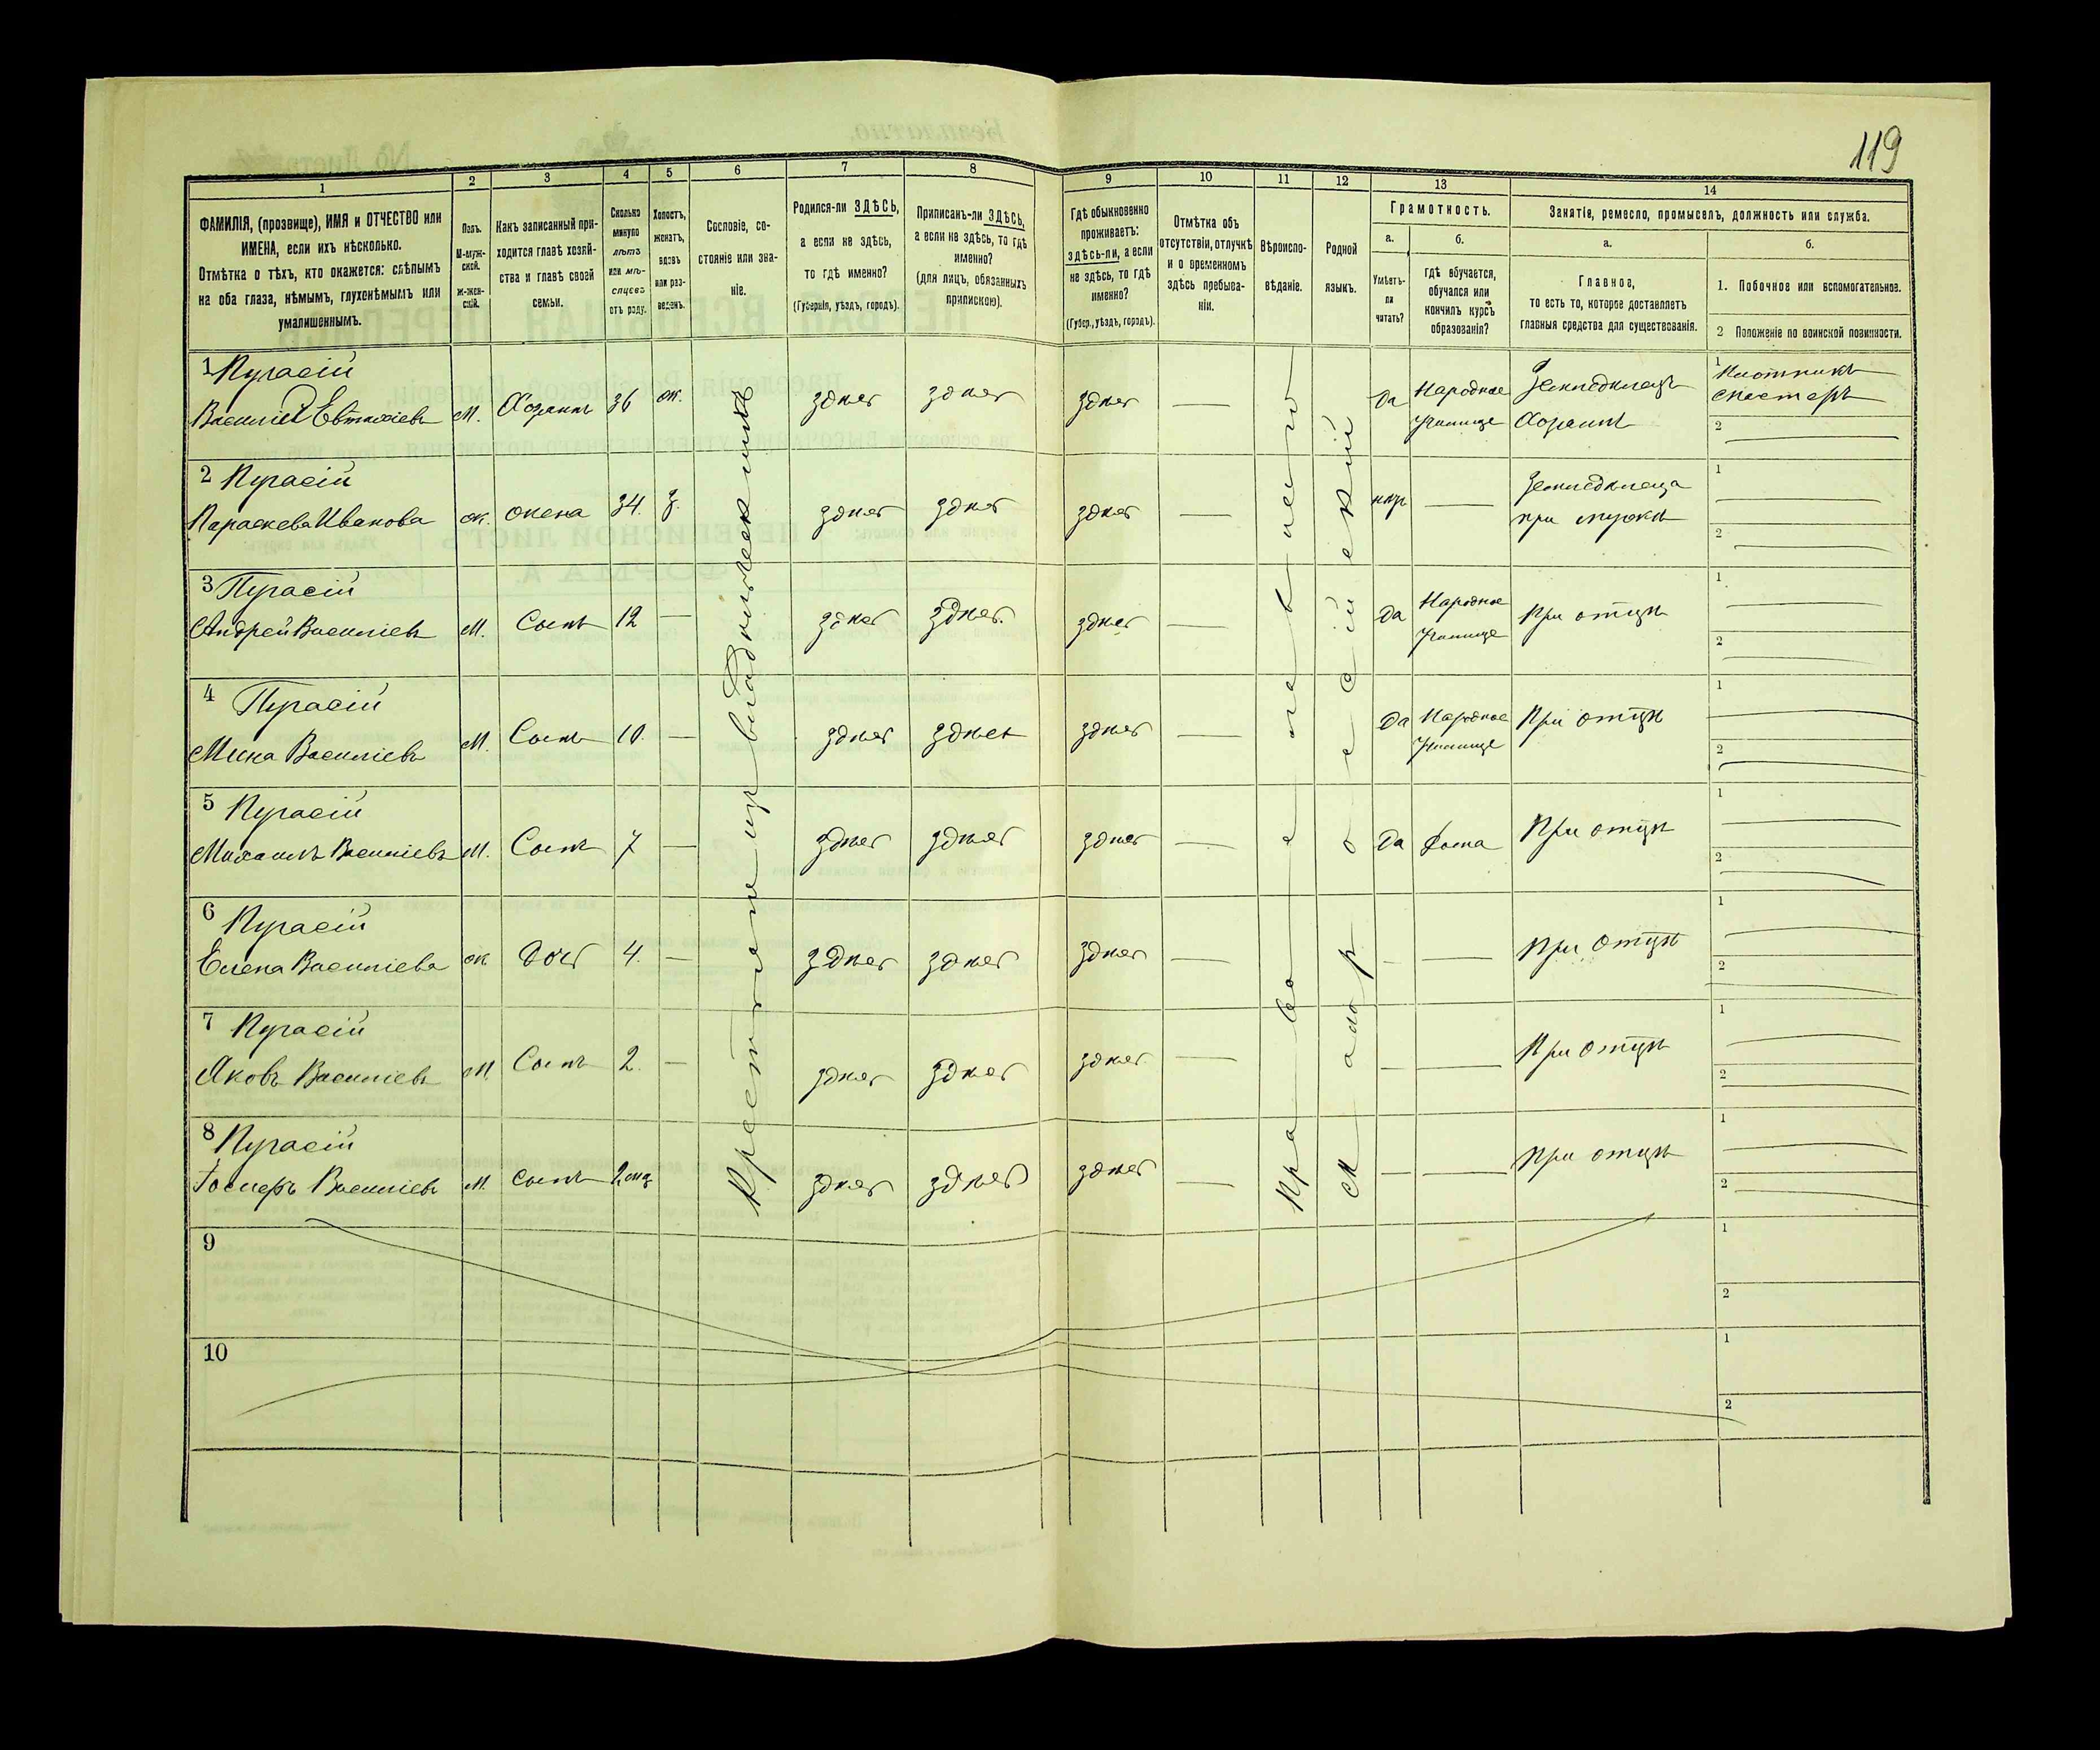 119
1
2
3
4
5
6
7
8
9
10
11
12
13
14
ФАМИЛІЯ, (прозвище), ИМЯ и ОТЧЕСТВО или
ИМЕНА, если ихъ нѣсколько.
Отмѣтка о тѣхъ, кто окажется: слѣпымъ
на оба глаза, нѣмымъ, глухонѣмымъ или
умалишеннымъ.
Полъ.
М-муж-
ской.
ж-жен-
скій.
Какъ записанный при-
ходится главѣ хозяй-
ства и главѣ своей
семьи.
Сколько
минуло
лѣтъ
или мѣ-
сяцевъ
отъ роду.
Холостъ,
женатъ,
вдовъ
или раз-
веденъ.
Сословіе, со-
стояніе или зва-
ніе.
Родился-ли ЗДѢСЬ,
а если не здѣсь,
то гдѣ именно?
(Губернія, уѣздъ, городъ).
Приписанъ-ли ЗДѢСЬ,
а если не здѣсь, то гдѣ
именно?
(для лицъ, обязанныхъ
припискою).
Гдѣ обыкновенно
проживаетъ:
здѣсь-ли, а если
не здѣсь, то гдѣ
именно?
(Губер., уѣздъ, городъ).
Отмѣтка объ
отсутствіи, отлучкѣ
и о временномъ
здѣсь пребыва-
ніи.
Вѣроиспо-
вѣданіе.
Родной
языкъ.
Грамотность.
а.
б.
Умѣетъ-
ли
читать?
гдѣ обучается,
обучался или
кончилъ курсъ
образованія?
Занятіе, ремесло, промыселъ, должность или служба.
а.
б.
Главное,
то есть то, которое доставляетъ
главныя средства для существованія.
1. Побочное или вспомогательное.
2 Положеніе по воинской повинности.
Крестьянин из владѣльческихъ
Православное
Малороссійскій
1 Пугасій
Василій Евтихіевъ м. Хозяинъ 36 ж. здѣсь здѣсь здѣсь — Да Народное Училище Земледѣлецъ Хозяинъ
1 Плотникъ
мастеръ
2
2 Пугасій
Параскева Иванова ж. жена 34. з. здѣсь здѣсь здѣсь — — Земледѣлица при мужѣ
1
2
3 Пугасій
Андрей Василіевъ м. Сынъ 12 — здѣсь здѣсь здѣсь — Да Народное Училище При отцѣ
1
2
4 Пугасій
Мина Василіевъ м. Сынъ 10. — здѣсь здѣсь здѣсь — Да Народное Училище При отцѣ
1
2
5 Пугасій
Михаилъ Василіевъ м. Сынъ 7 — здѣсь здѣсь здѣсь — Да Дома При отцѣ
1
2
6 Пугасій
Елена Василіева ж Доч 4. — здѣсь здѣсь здѣсь — — — При отцѣ
1
2
7 Пугасій
Яковъ Василіевъ м. Сынъ 2. — здѣсь здѣсь здѣсь — — — При отцѣ
1
2
8 Пугасій
Іосифъ Василіевъ м. сынъ 2 мц здѣсь здѣсь здѣсь — — — При отцѣ
1
2
9
1
2
10
1
2